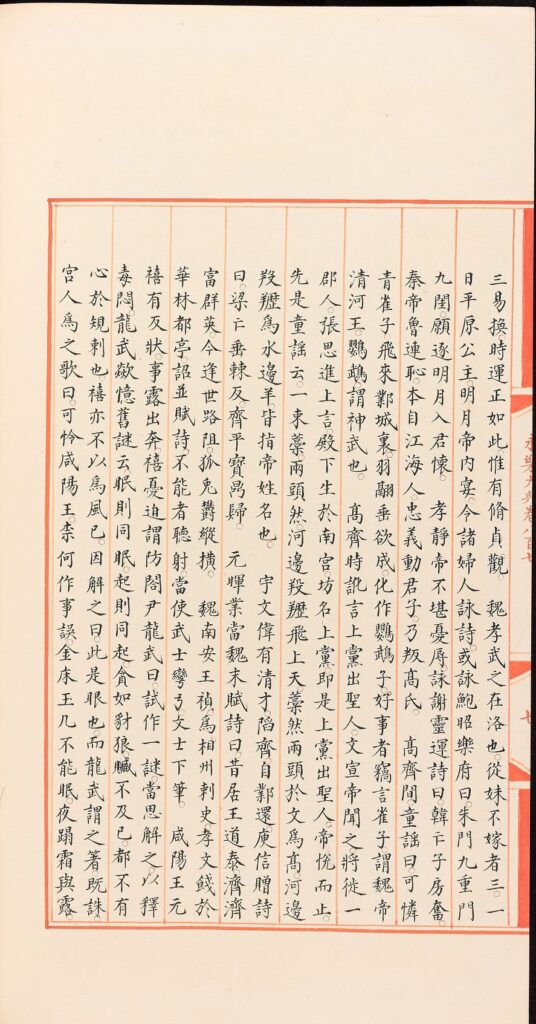 三易換時運正如此惟有脩貞觀　魏孝武之在洛也。從妹不嫁者三。一
日平原公主。明月帝内宴。令諸婦人詠詩。或詠鮑昭樂府曰。朱門九重門
九閨。願逐明月入君懷。　孝靜帝不堪憂辱。詠謝靈運詩曰。韓亡子房奮。
秦帝魯連恥。本自江海人。忠義動君子。乃叛髙氏。　髙齊間童謡曰可憐
青雀子飛來鄴城裏。羽翮垂欲成化作鸚鵡子。好事者竊言雀子謂魏帝
清河王。鸚鵡謂神武也。　髙齊時訛言上黨出聖人。文宣帝聞之將徙一
郡。人張思進上言。殿下生於南宫坊名上黨。即是上黨出聖人。帝悅而止。
先是童謡云。一束藁兩頭然。河邊羖䍽飛上天。藁然兩頭。於文爲髙。河邊
羖䍽爲水邊羊。皆指帝姓名也。　宇文偉有清才。陷齊。自鄴還。庾信贈詩
曰。梁亡垂棘反。齊平寶鼎歸。　元暉業當魏末賦詩曰。昔居王道泰。濟濟
富群英。今逢世路阻。狐兎鬱縱橫。　魏南安王禎爲相州刺史。孝文餞於
華林都亭。詔並賦詩。不能者聽射。當使武士彎弓。文士下筆。　咸陽王元
禧有反狀。事露出奔。禧憂迫。謂防閤尹龍武曰。試作一謎。當思解之。以釋
毒悶。龍武歘憶舊謎云。眠則同眠。起則同起。貪如豺狼。贓不及已。都不有
心於規刺也。禧亦不以爲風已。因解之曰。此是眼也。而龍武謂之著。既誅。
宫人爲之歌曰。可怜咸陽王。柰何作事誤。金床玉几不能眠。夜蹋霜與露。
永樂大典卷八百七
七